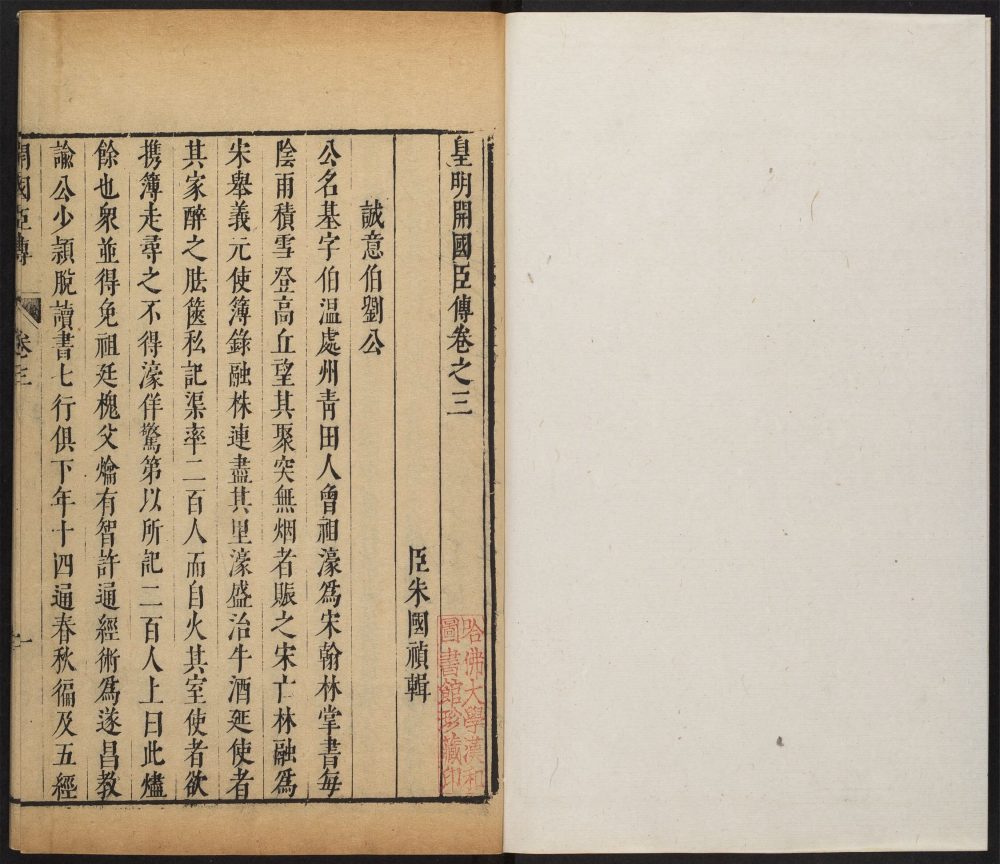 皇明開國臣傳卷之三
臣朱國禎輯
誠意伯劉公
公名基字伯溫處州青田人曾祖濠爲宋翰林掌書每
陰雨積雪登高丘望其聚突無烟者賑之宋亡林融爲
宋舉義元使簿錄融株連盡其里濠盛治牛酒延使者
其家醉之胠篋私記渠率二百人而自火其室使者欲
携簿走尋之不得濠佯驚第以所記二百人上曰此燼
餘也衆並得免祖廷槐父爚有智許通經術爲遂昌教
諭公少頴脫讀書七行俱下年十四通春秋徧及五經
開國臣傳 卷三 一
哈佛大學漢和
圖書館珍藏印